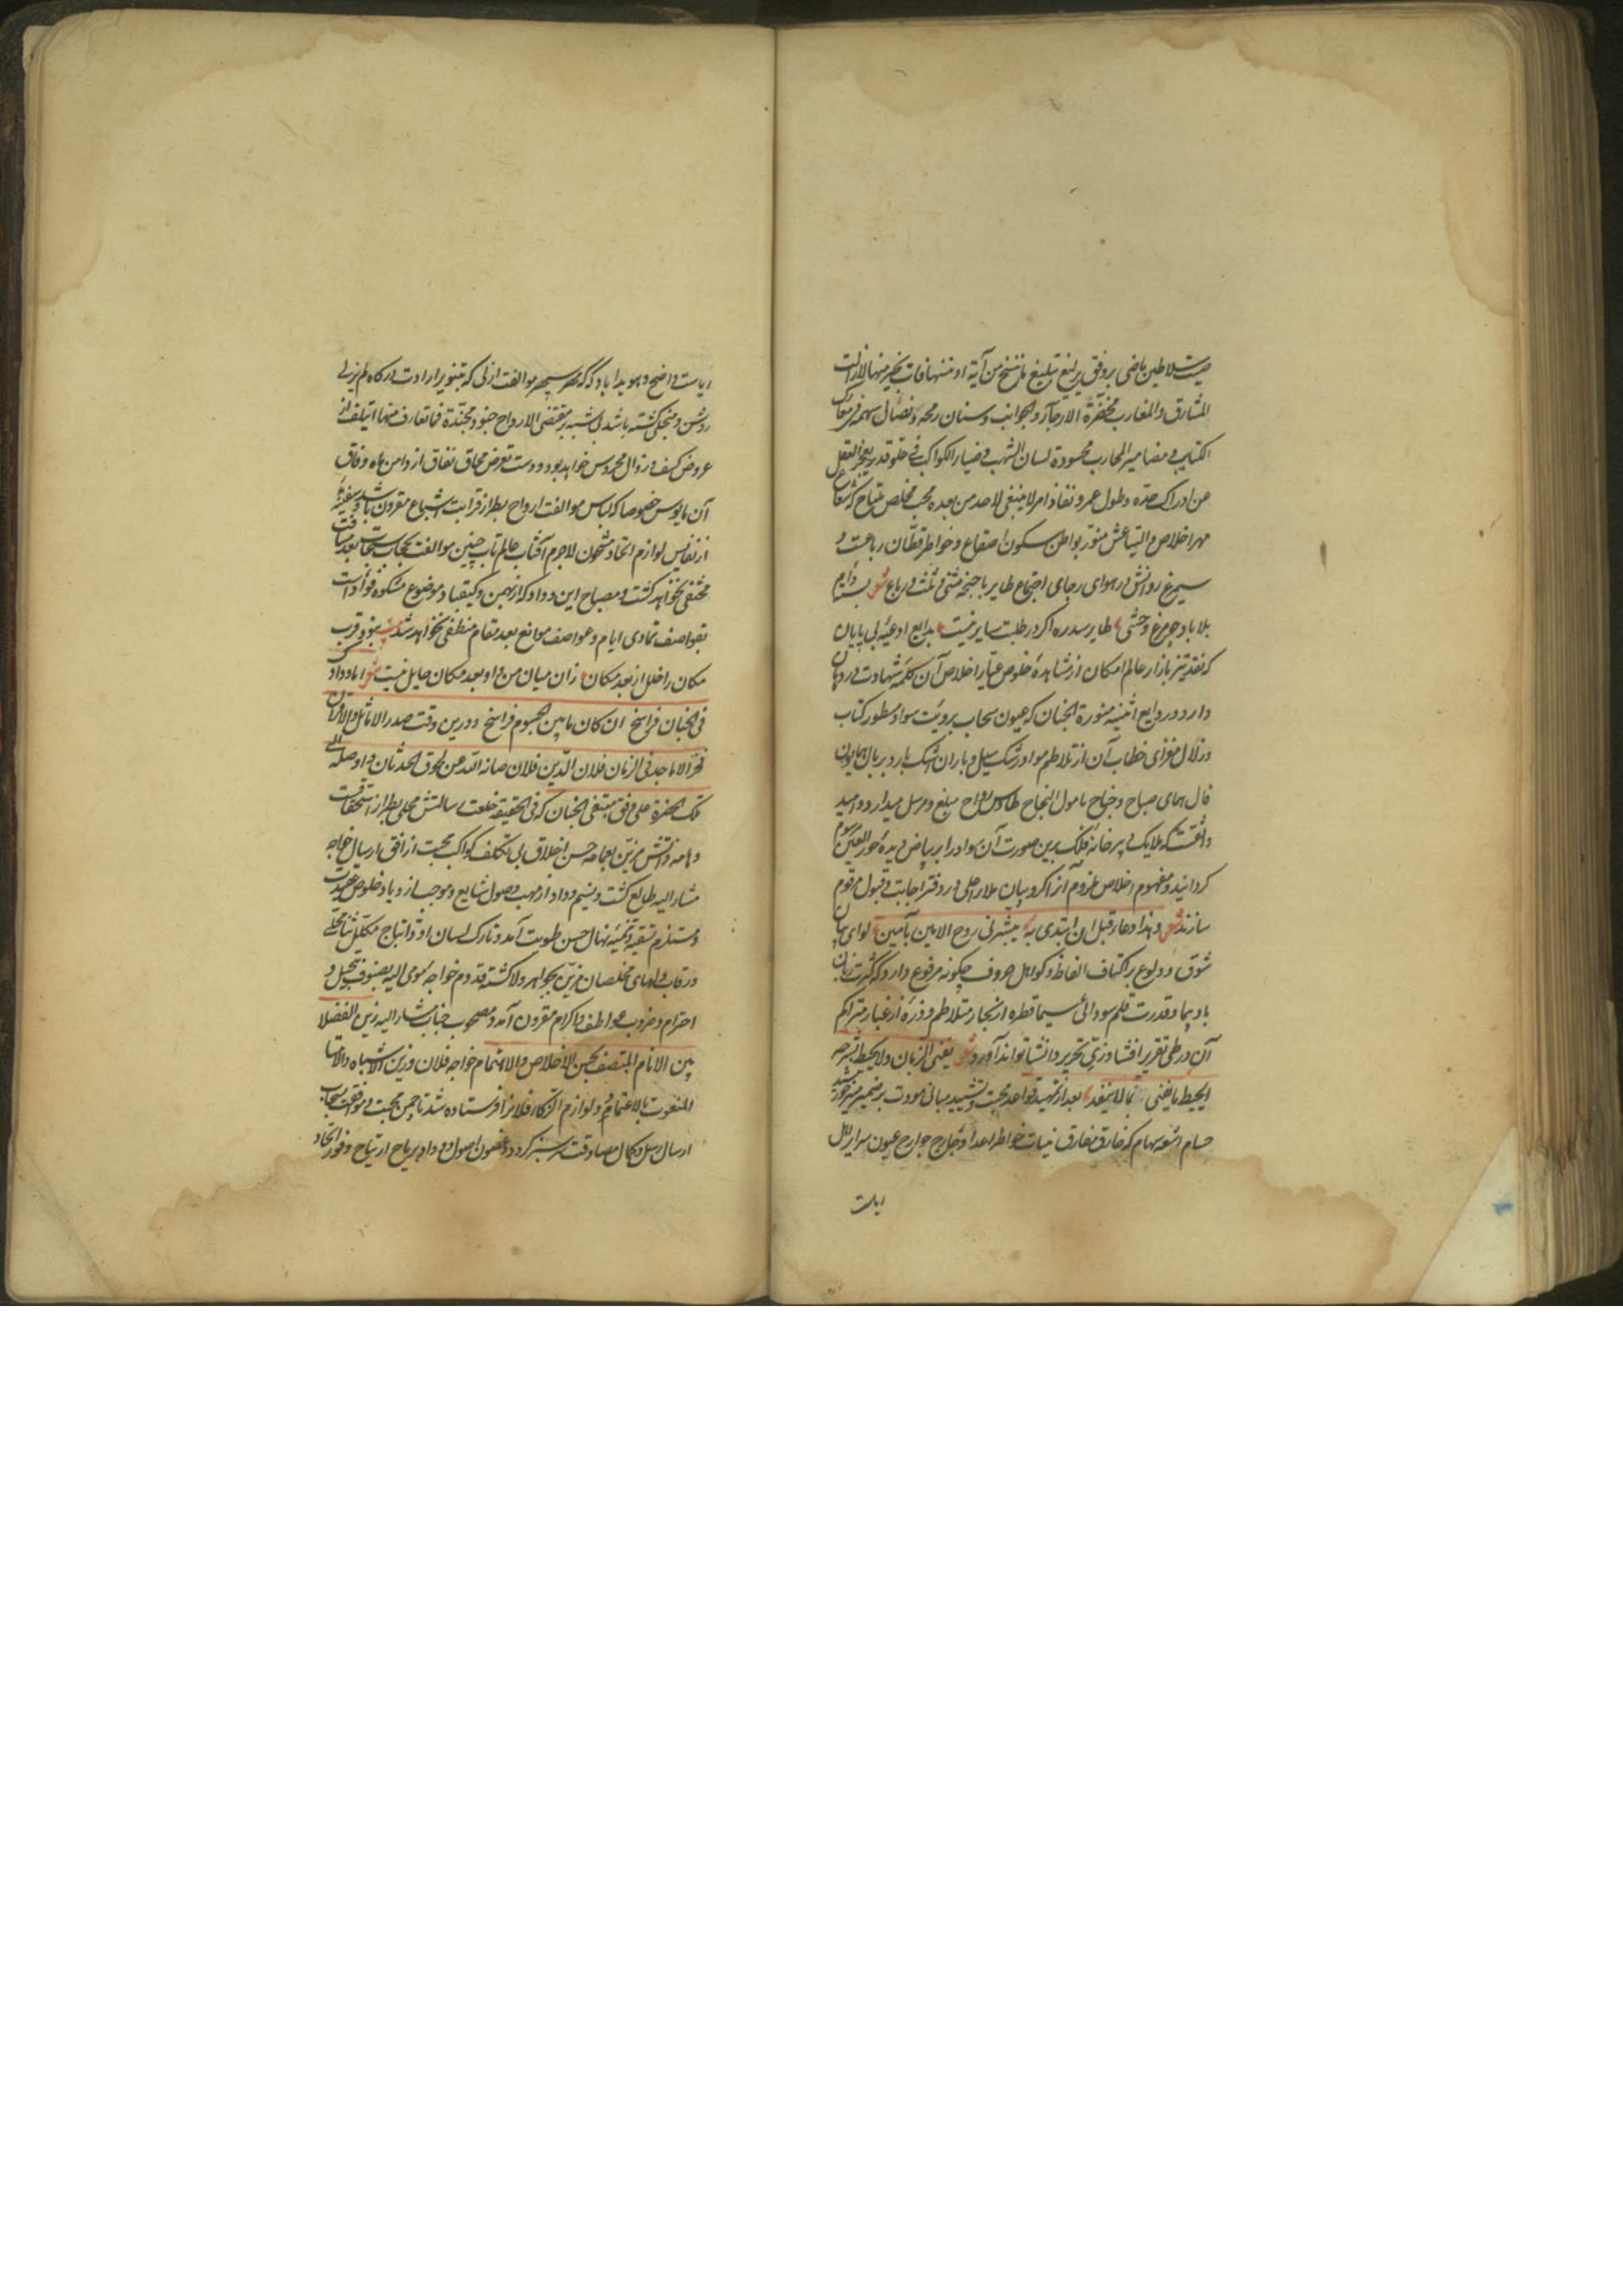 صیت سلاطین ماضی بر وفق یرلیغ تبلیغ ما ننسخ من آیة او ننسها نأت بخیر منها لا زالت
المشارق و المغارب مخضرة الارجآء و الجوانب و سنان رمحه و نصال سهمه فی معارک
الکتایب و مضامیر المحارب محسودة لسان الشهب و ضیاء الکواکب فی علو قدر یعجز العقل
عن ادراک حده و طول عمر و نفاذ امر لا ینبغی لاحد من بعده محب مخلص ملتاح که شعاع
مهر اخلاص و التیاعش منور بواطن سکون اصقاع و خواطر قطان رباعست و
سیمرغ روانش در هوای رجای اجتماع طایر باجنحه مثنی و ثلث و رباع شعر بسته دایم
بلا باد چو مرغ وحشی طایر سدره اگر در طلبت سایر نیست بدایع ادعیه بی پایان
که نقد تیز بازار عالم امکان از مشاهده خلوص عیار اخلاص آن کلمه شهادت در دهان
دارد و روایع اثنیه منورة الجنان که عیون سحاب برویت سواد سطور کتاب
و زلال فحوای خطاب آن از تلاطم مواد رشک سیل و باران اشک بارد بر بال همایون
فال همای صباح و جناح مامول النجاح طاوس رواح مبلغ و مرسل میدارد و امید
واثقست که ملایک دبیرخانه فلک برین صورت آن سواد را بر بیاض دیده حور العین مرسوم
گردانید و مفهوم اخلاص ملزوم آنرا کروبیان ملاء اعلی در دفتر اجابت و قبول مرقوم
سازند شعر و هذا دعاء قبل ان ابتدی به یبشرنی روح الامین بآمین لوای بیان
شوق و ولوع بر اکتاف الفاظ و کواهل حروف چگونه مرفوع دارد که کثرت زبان
باد پیما و قدرت قلم سودائی سیما قطره از بحار متلاطم و ذره از غبار متراکم
آن در طی تقریر افشا و زی تحریر و انشا تواند آورد شعر یفنی الزمان و لا یحیط بشرحه
ایحیط ما یفنی بما لا ینفد بعد از تمهید قواعد محبت و تشیید مبانی مودت بر ضمیر منیر خورشید
حسام اشعه سهام که خارق مفارق نیات خواطر اعدا و جارح جوارح عیون سرایر اهل
ریاست
ریاست واضح و هویدا باد که مهر سپهر موالفت ازلی که بتنویر ارادت درگاه لم یزلی
روشن و منجلی گشته باشد بلا شبه بمقتضی الارواح جنود مجنّدة فما تعارف منها ائتلف از
عروض کسف و زوال محروس خواهد بود و دست تعرض محاق نفاق از دامن ماه وفاق
آن مایوس خصوصا که لباس موالفت ارواح بطراز قرابت اشباع مقرون باشد و سفینه
از نفایس لوازم اتحاد مشحون لاجرم آفتاب عالم تاب چنین موالفت بحجاب سحاب بعد مسافت
مختفی نخواهد گشت و مصباح این وداد که از بهمن و کیقباد موضوع مشکوة فواد است
بقواصف تمادی ایام و عواصف موانع بعد مقام منطفی نخواهد شد بیت نبود قرب
مکان را خلل از بعد مکان زان میان من و او بعد مکان حایل نیست شعر اما و ودادک
فی الجنان فراسخ ان کان ما بین الجسوم فراسخ و درین وقت صدر الاماثل و الاقران
فخر الاماجد فی الزمان فلان الدین فلان صانه الله عن طوق الحدثان و اوصله الی
تلک الحضرة علی وفق مبتغی الجنان که فی الحقیقه خلعت رسالتش محلی بطراز استحقاقست
و هامه ذاتش مزین بعمامه حسن اخلاق بی تکلف کواکب محبت از افق ارسال خواجه
مشار الیه طالع گشت و نسیم وداد از مهب وصول شایع و موجب ازدیاد خلوص عقیدت
و مستلزم تسقیه و تنمیه نهال حسن طویت آمد و تارک لسان او ذا ابتاج مکلل ثنا محلی
و رقاب دلهای مخلصان مزین بجواهر ولا گشته قدوم خواجه مومی الیه بصنوف تبجیل و
احترام و ضروب عواطف و اکرام مقرون آمد و مصحوب جناب مشار الیه زین الفضلا
بین الانام المتصف بحسن الاخلاص و الاهتمام خواجه فلان و زین الاشباه و الامثال
المنعوت بالاعتماد و لوازم الذکاء فلان را فرستاده شد تا چمن محبت و موافقت بسحاب
ارسال رسل و کمال مصادقت سرسبز گردد و غصون اصول وداد بریاح ارتیاح و فور اتحاد